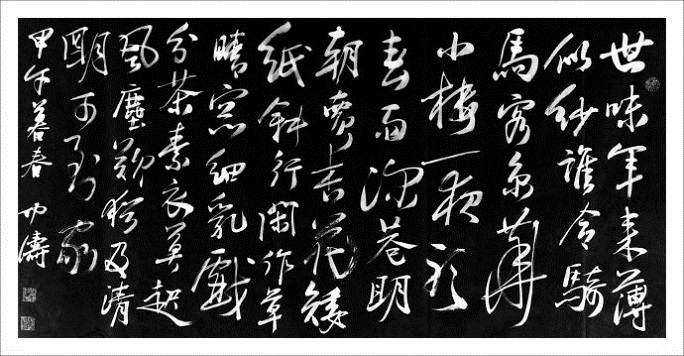 世味年来薄
似紗誰令騎
馬客京華
小樓一夜聽
春雨深巷明
朝賣杏花矮
紙斜行閑作草
晴窗細乳戲
分茶素衣莫起
風塵歎猶及清
明可到家
甲午暮春 濤